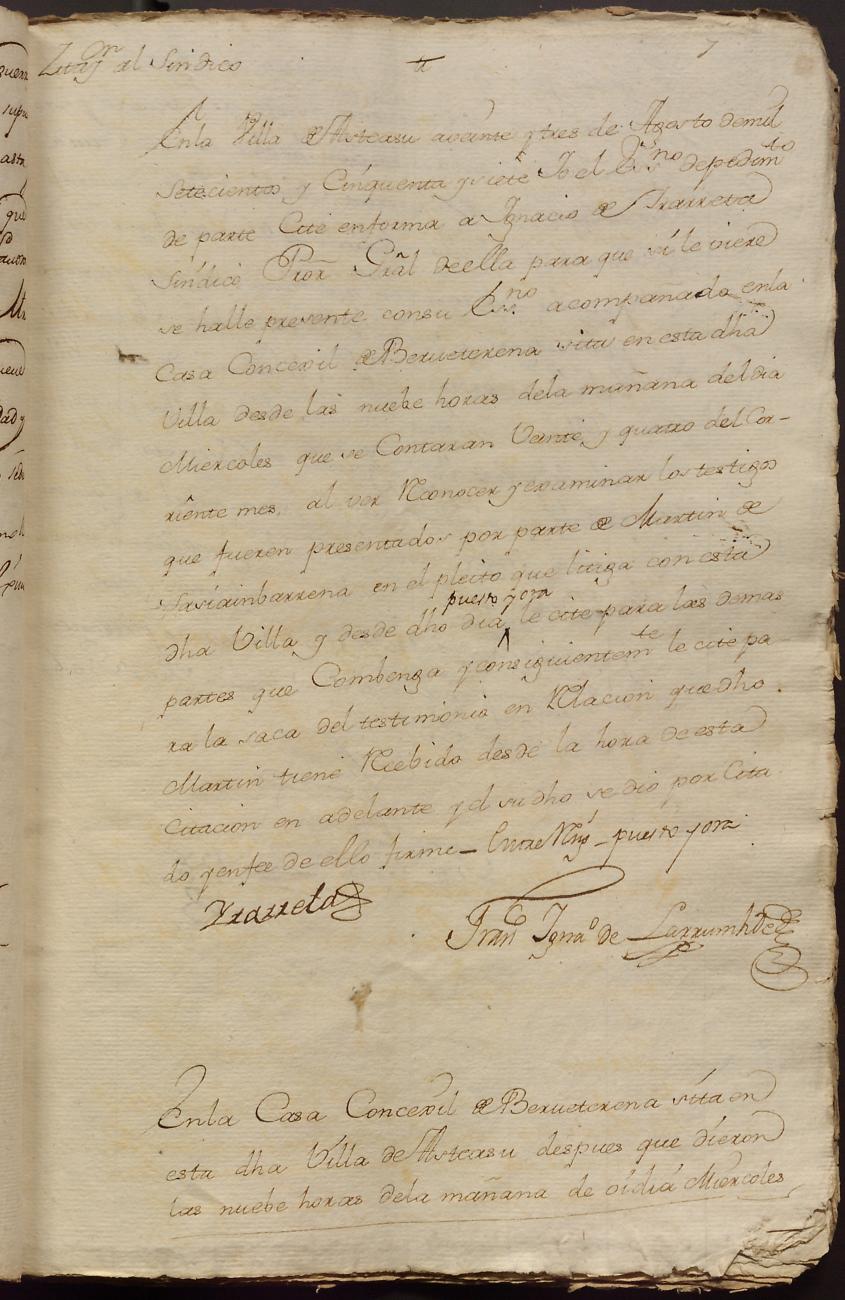 Zitaz.on al Sindico
7
En la Villa de Asteasu a veinte y tres de Agosto de mil
setecientos y Cinquenta y siete Yo el Es.no de pedim.to
de parte Cité en forma a Ignacio de Yrarreta
Sindico Pror Gral de ella para que si le viere
se halle presente con su Es.no acompañado en la
Casa Concexil de Berueterena sita en esta dha
Villa desde las nuebe horas de la mañana del dia
Miercoles que se Contaran Veinte y quatro del Cor-
riente mes, al ver Reconocer y examinar los testigos
que fueren presentados por parte de Martin de
en el pleito que litiga con esta
puesto y ora
dha Villa, y desde dho dia le cite para las demas
partes que Combenga y consiguientem.te le cite pa
ra la saca del testimonio en Relacion que dho
Martin tiene Recebido desde la hora de esta
Citacion en adelante y el su dho se dio por Cita
do y en fee de ello firmé - Entre Rengs - puesto y ora
Yrarreta
Fran.co Igna.o de Larrumhide
En la Casa Concexil de Berueterena sita en
esta dha Villa de Asteasu despues que dieron
las nuebe horas de la mañana de oi dia Miercoles